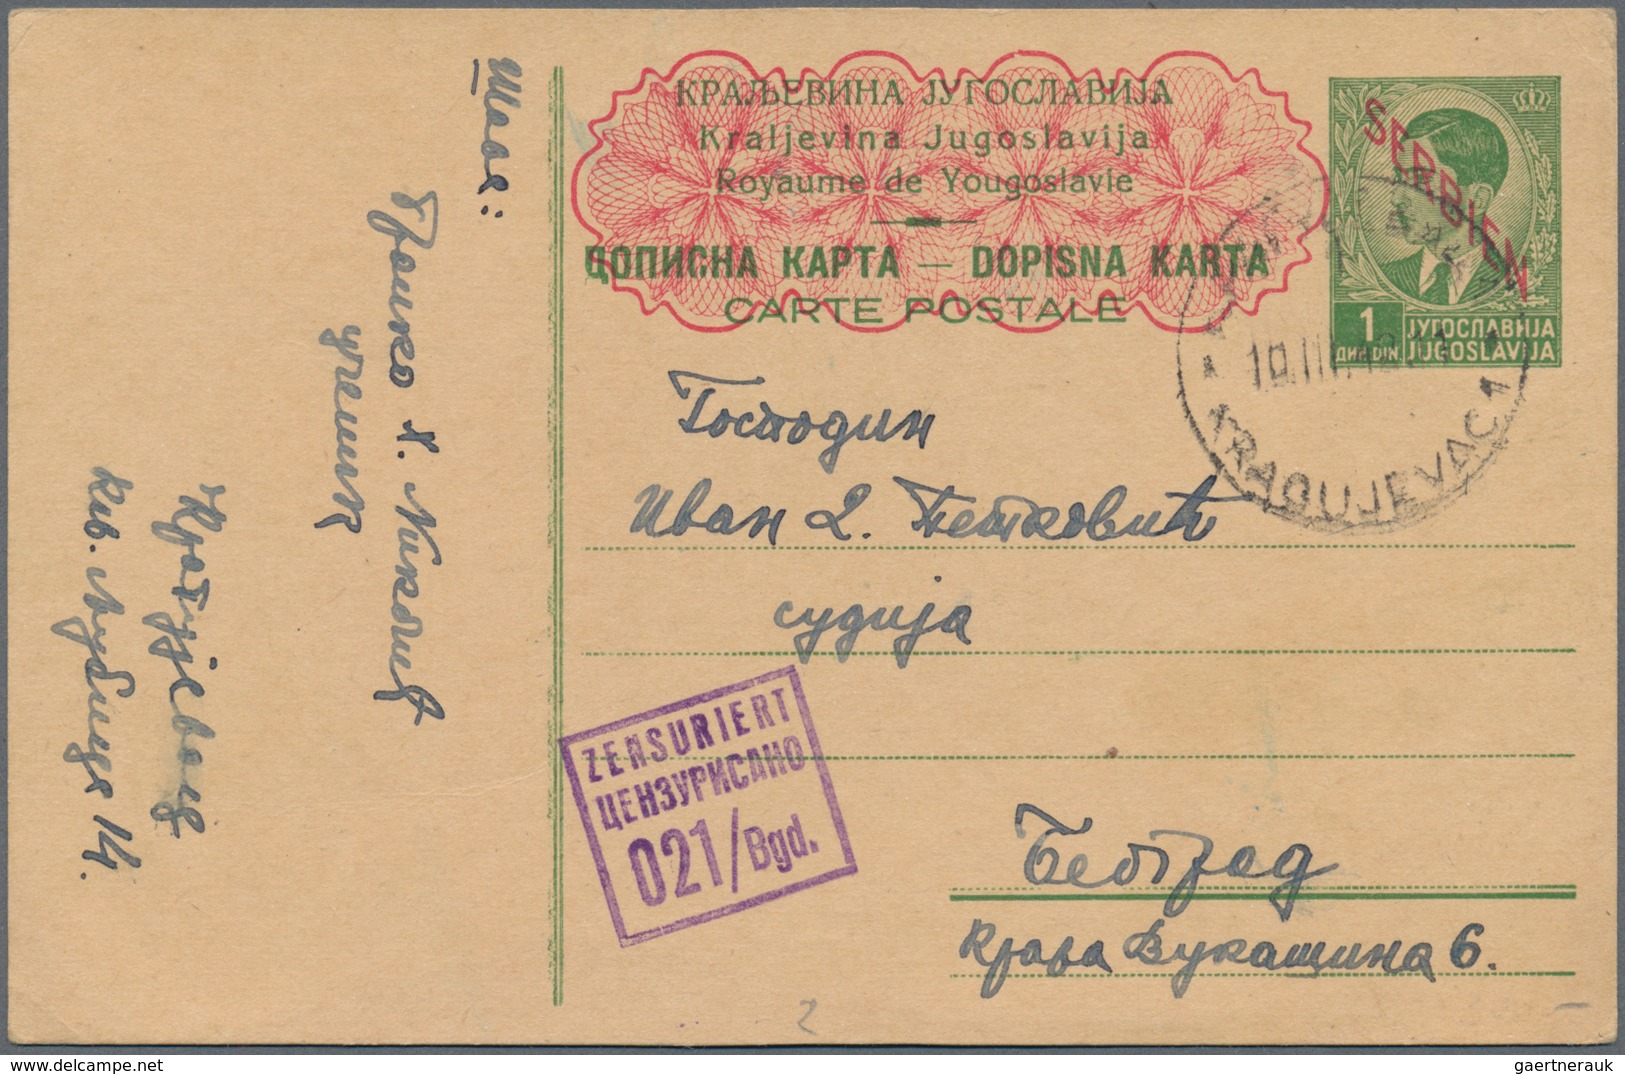 КРАЉЕВИНА ЈУГОСЛАВИЈА
Kraljevina Jugoslavija
Royaume de Yougoslavie
ДОПИСНА КАРТА — DOPISNA KARTA
CARTE POSTALE
SERBIEN
1
ДИН DIN
ЈУГОСЛАВИЈА
JUGOSLAVIJA
KRAGUJEVAC 1
Господин
Иван Д. Петковић
судија
Београд
Краља Вукашина 6.
ZENSURIERT
ЦЕНЗУРИСАНО
021/Bgd.
Шаље:
Х. Николић
ученик
Крагујевац
14.
delcampe.net
gaertnerauk